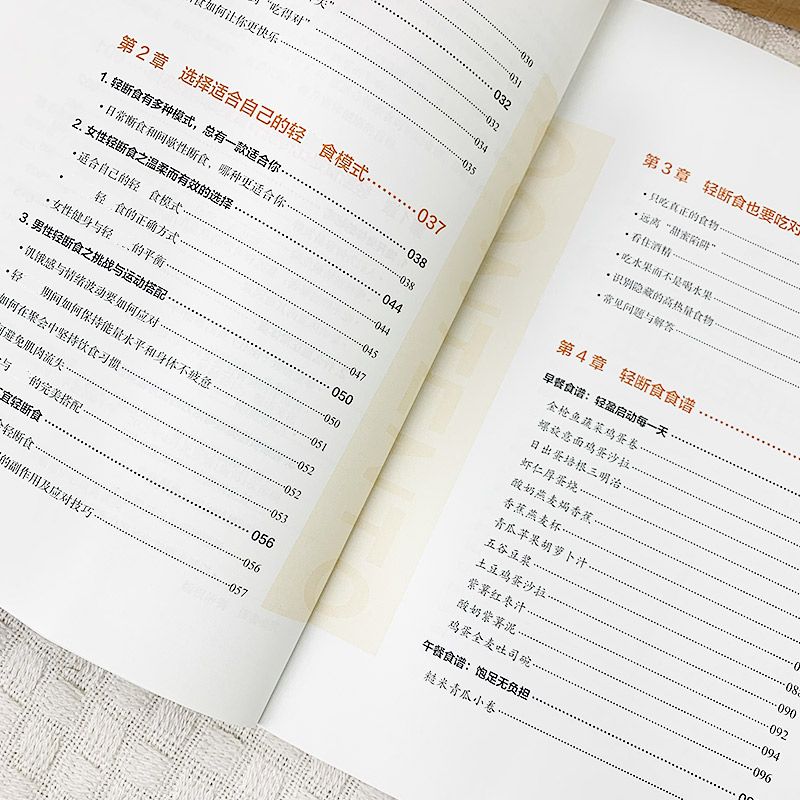 “吃得对”
食如何让你更快乐
030
031
032
032
034
035
第2章 选择适合自己的轻 食模式 037
1. 轻断食有多种模式，总有一款适合你 038
• 日常断食和间歇性断食，哪种更适合你 038
2. 女性轻断食之温柔而有效的选择 044
• 适合自己的轻 食模式 044
• 轻 食的正确方式 045
• 女性健身与轻 的平衡 047
3. 男性轻断食之挑战与运动搭配 050
• 饥饿感与情绪波动要如何应对 050
• 轻 期间如何保持能量水平和身体不疲惫 051
如何在聚会中坚持饮食习惯 052
何避免肌肉流失 052
与 的完美搭配 053
宜轻断食 056
轻断食 056
的副作用及应对技巧 057
CONTENTS
第3章 轻断食也要吃对
• 只吃真正的食物
• 远离“甜蜜陷阱”
• 看住酒精
• 吃水果而不是喝水果
• 识别隐藏的高热量食物
• 常见问题与解答
第4章 轻断食食谱
早餐食谱：轻盈启动每一天
金枪鱼蔬菜鸡蛋卷
螺旋意面鸡蛋沙拉
日出蛋培根三明治
虾仁厚蛋烧
酸奶燕麦焗香蕉
香蕉燕麦杯
青瓜苹果胡萝卜汁
五谷豆浆
土豆鸡蛋沙拉
紫薯红枣汁
酸奶紫薯泥
鸡蛋全麦吐司碗
午餐食谱：饱足无负担
糙米青瓜小卷
088
090
092
094
096